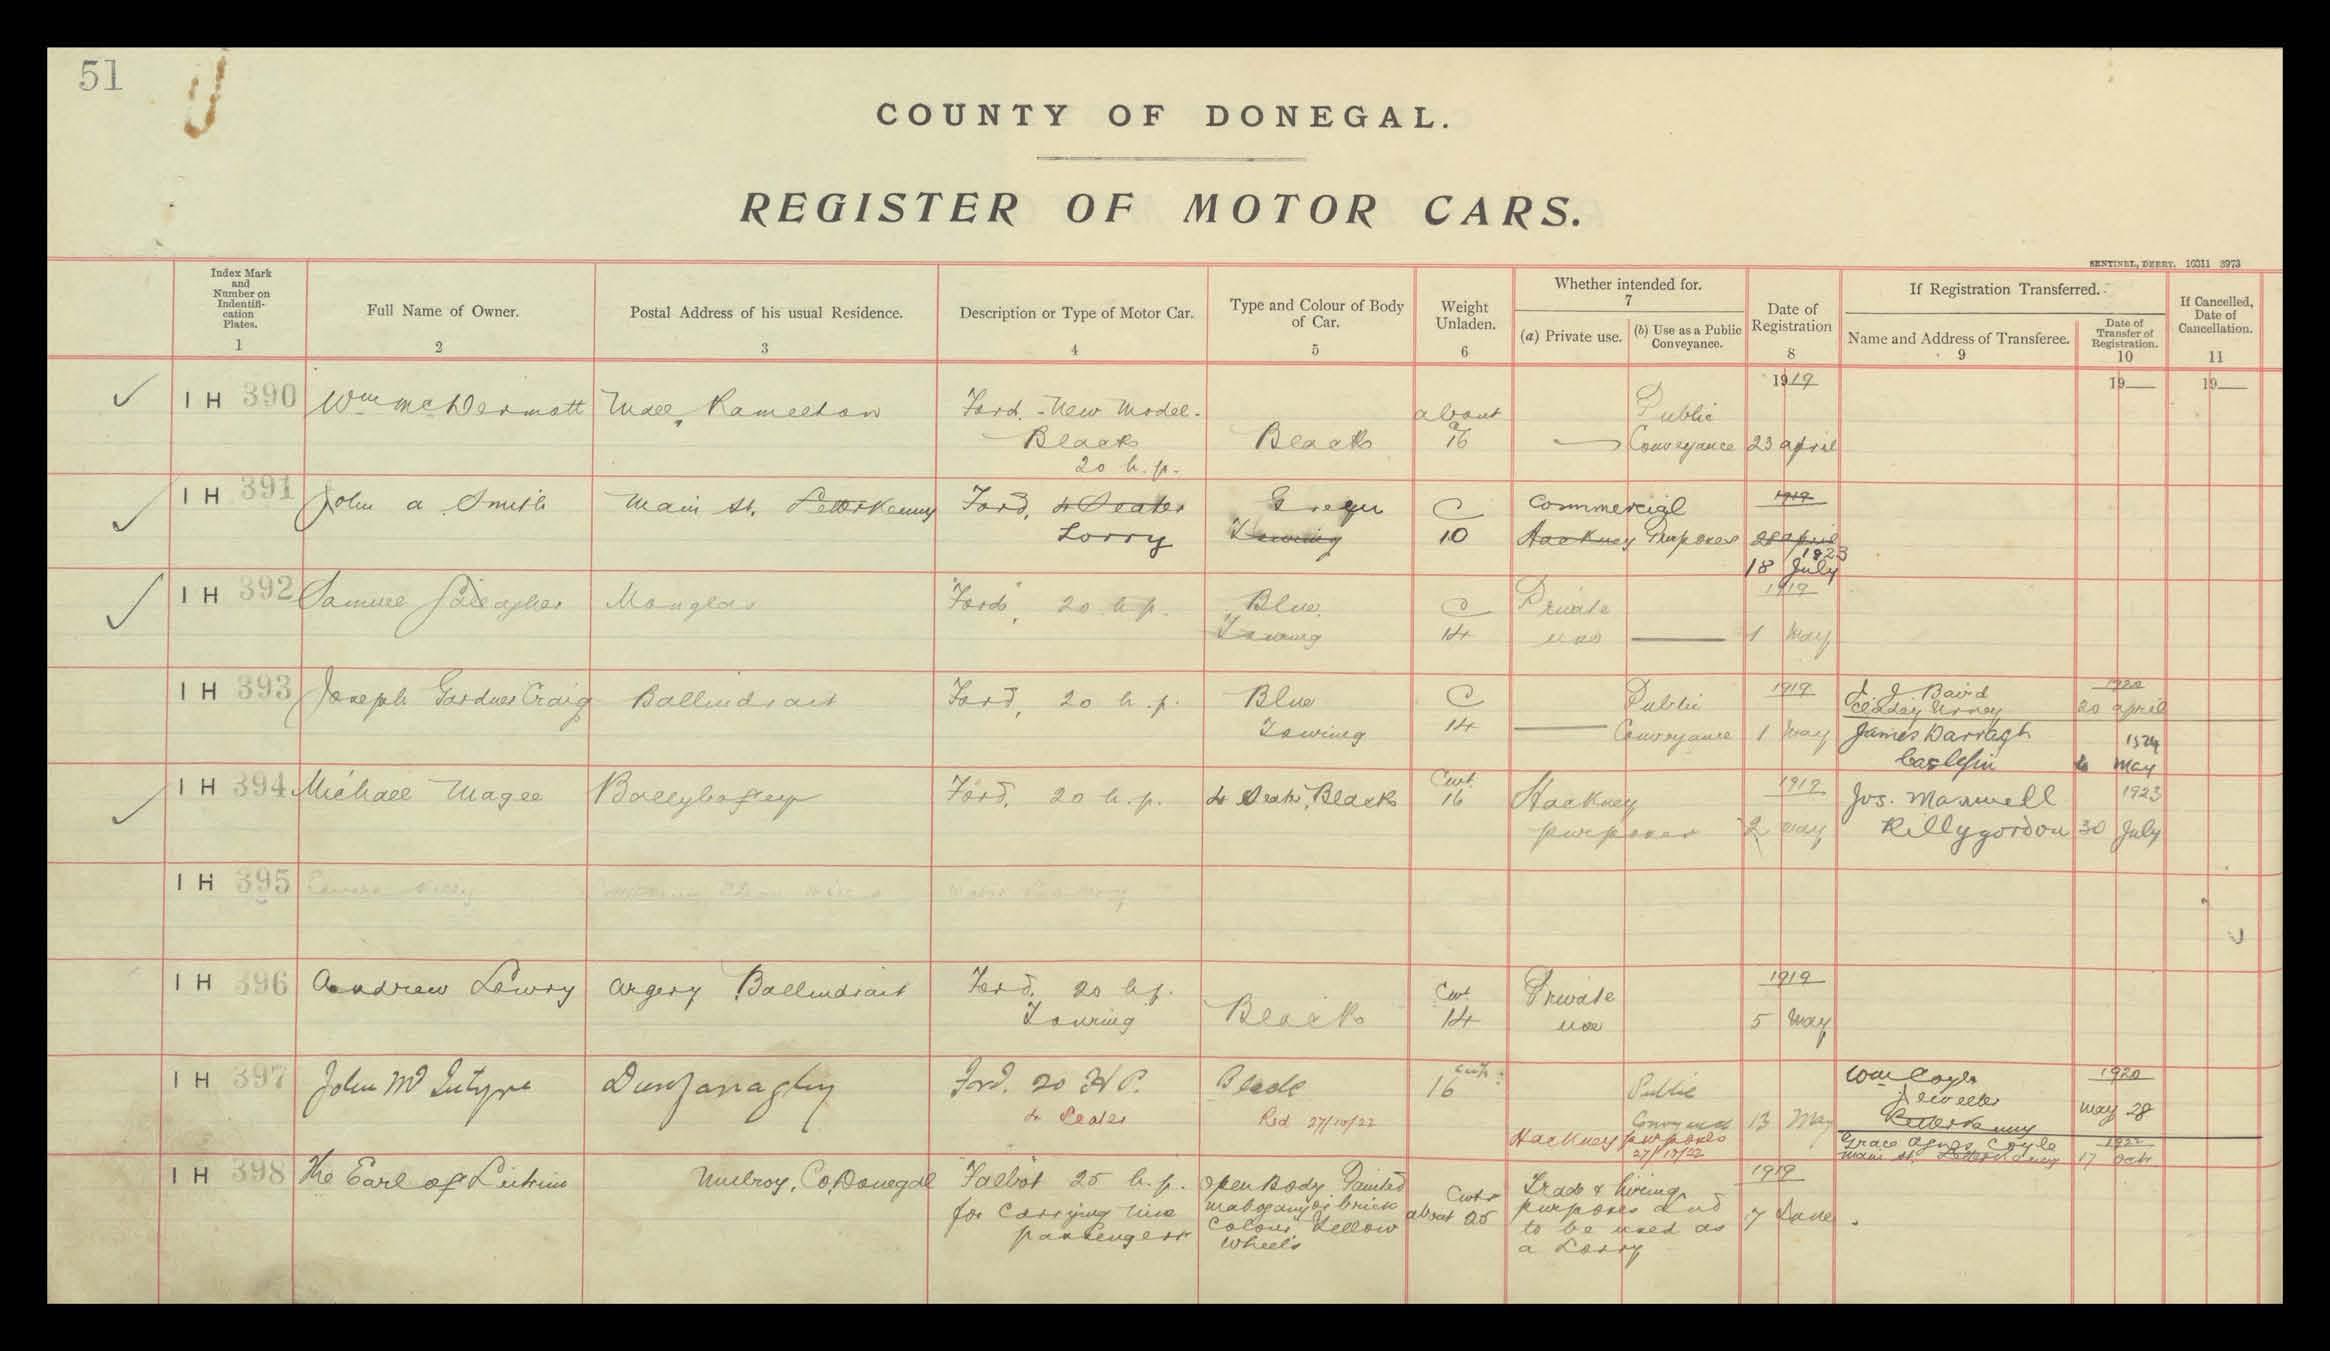 51
COUNTY OF DONEGAL.
REGISTER OF MOTOR CARS.
SENTINEL, DERRY. 10311 3973
Index Mark and Number on Indentifi-cation Plates. 1
Full Name of Owner. 2
Postal Address of his usual Residence. 3
Description or Type of Motor Car. 4
Type and Colour of Body of Car. 5
Weight Unladen. 6
Whether intended for. 7
(a) Private use.
(b) Use as a Public Conveyance.
Date of Registration 8
If Registration Transferred.
Name and Address of Transferee. 9
Date of Transfer of Registration. 10
If Cancelled, Date of Cancellation. 11
1919 19 19
IH 390 Wm McDermott Ramelton Ford. New Model. about Public
Black Black 16 Conveyance 23 April
20 h.p.
IH 391 John A Smith Main St. Letterkenny Ford, 4 Seater Green C Commercial 1919
Lorry Touring 10 Hackney Purposes 28 April
1923
18 July
IH 392 Samuel Gallagher Monglas Ford, 20 h.p. Blue C Private 1919
Touring 14 use 1 May
IH 393 Joseph Gardner Craig Ballindrait Ford, 20 h.p. Blue C Public 1919 J J Baird 1920
Claddy Urney 20 April
Touring 14 Conveyance 1 May James Darragh 1924
Castlefin May
IH 394 Michael Magee Ballybofey Ford, 20 h.p. 4 Seater, Black Cwt. 16 Hackney 1919 Jos. Maxwell 1923
purposes 2 May Killygordon 30 July
IH 395
IH 396 Andrew Lowry Argery Ballindrait Ford, 20 h.p. Cwt Private 1919
Touring Black 14 use 5 May
IH 397 John McIntyre Dunfanaghy Ford. 20 H P. Black 16 cwts Public Wm Coyle 1920
Jeweller
4 Seater Red 27/10/22 Conveyance 13 May Letterkenny May 28
Hackney purposes Grace Agnes Coyle 1922
27/10/22 Main St. Letterkenny 17 Oct
IH 398 The Earl of Leitrim Mulroy, Co. Donegal Talbot 25 h.p. Open Body Painted Cwts Trade & hiring 1919
for carrying nine mahogany or brick about 25 purposes and 7 June
passengers colour Yellow to be used as
Wheels a Lorry